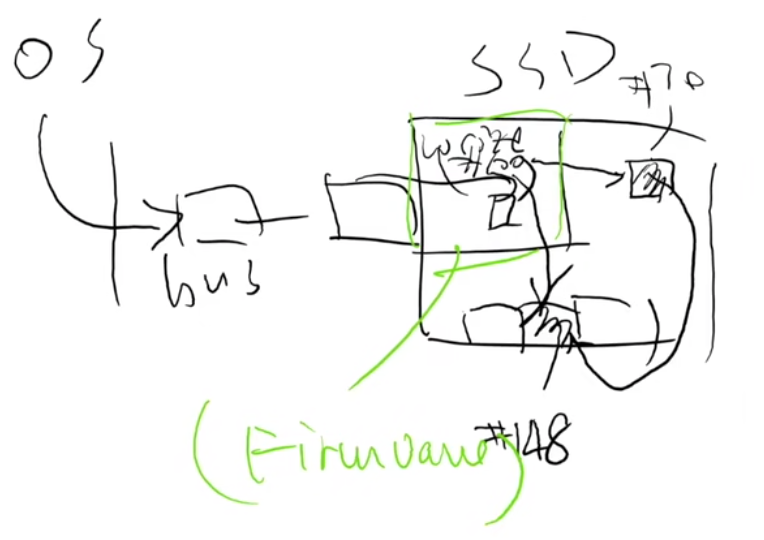 OS
SSD
#70
write
bus
(Firmware)
#148